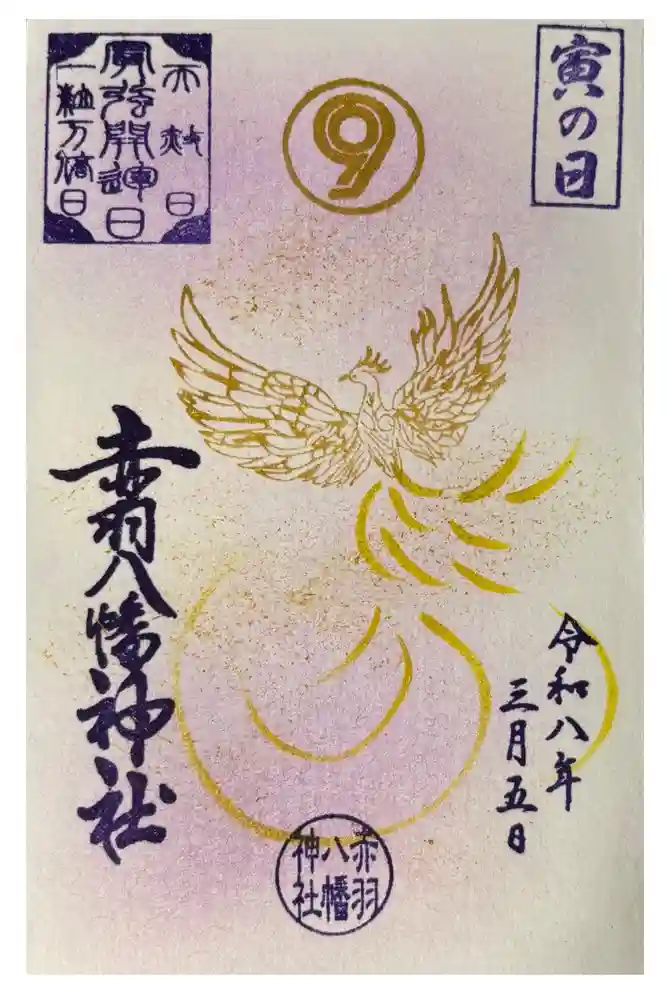 寅の日
9
天赦日
最強開運日
一粒万倍日
令和八年
三月五日
赤羽八幡神社
赤羽
八幡
神社